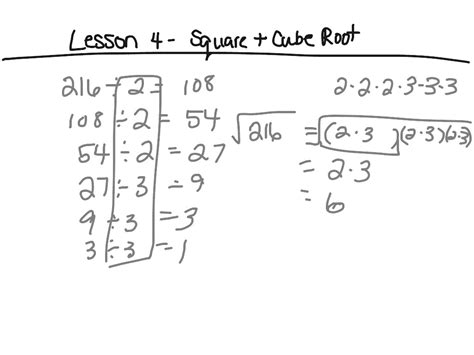 Lesson 4 - Square + Cube Root
216 ÷ 2 = 108
108 ÷ 2 = 54
54 ÷ 2 = 27
27 ÷ 3 = 9
9 ÷ 3 = 3
3 ÷ 3 = 1
2·2·2·3·3·3
√216 = (2·3)(2·3)(2·3)
= 2·3
= 6